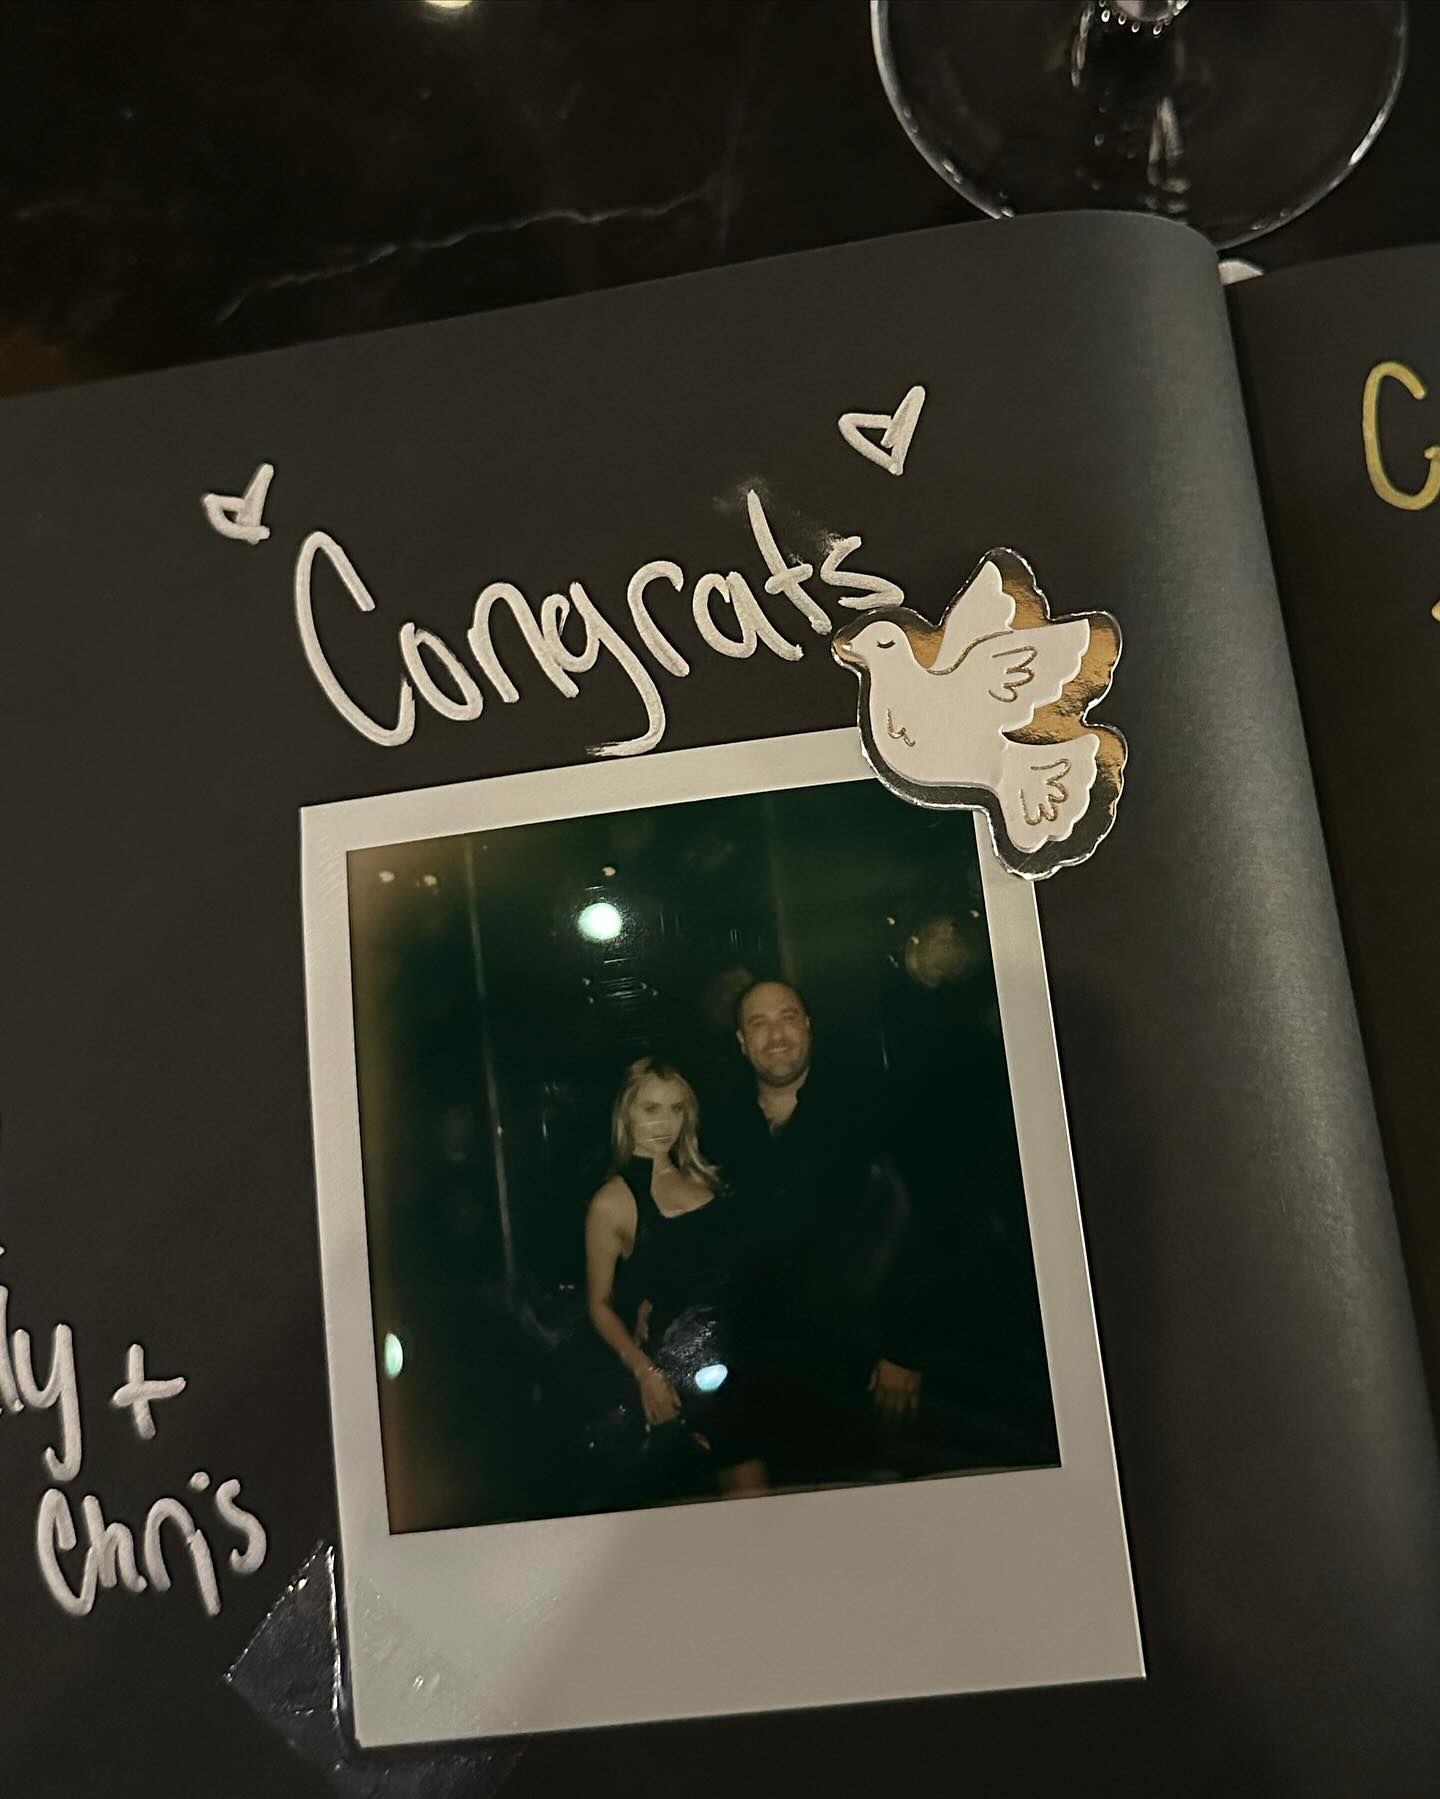 Congrats
+
Chris